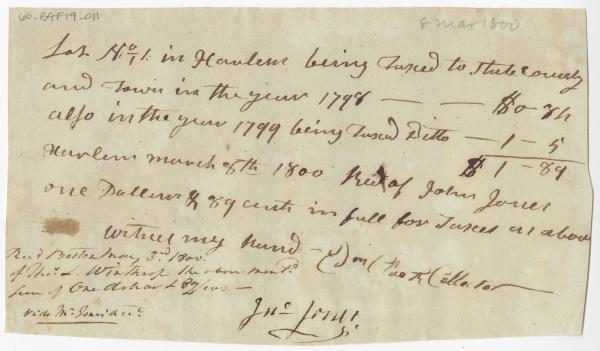 60-BAF19-011
8 Mar 1800
Lot No. 1. in Harlem being Taxed to State County
and Town in the year 1798 — — $0-84
also in the year 1799 being Taxed Ditto — 1 - 5
$ 1 - 89
Harlem march 8th 1800 Recd of John Jones
one Dollar & 89 cents in full for Taxes as above
Witness my hand - Collector
Recd Boston May 3d. 1800.
of Thos. L. Winthrop the above mentd.
sum of One dollar & 89/100 —
vide Mr. Jones acct.
Jno. Jones